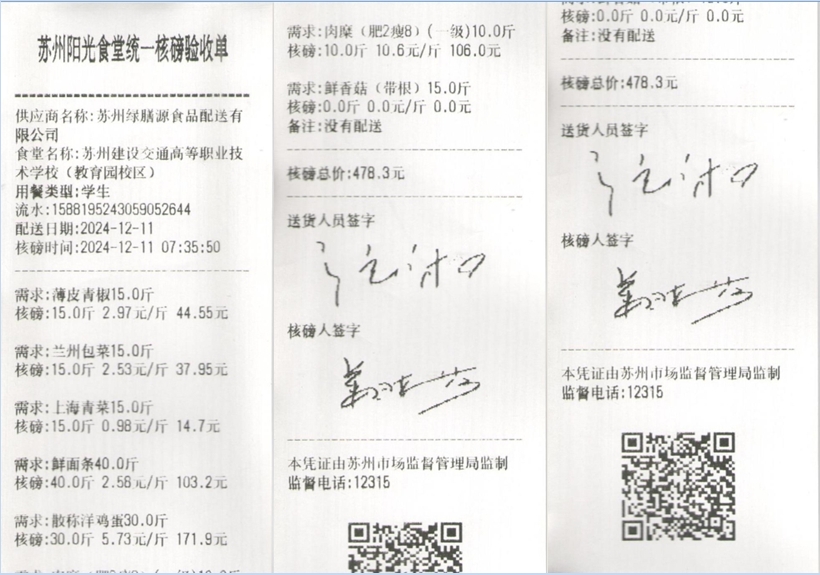 苏州阳光食堂统一核磅验收单
供应商名称:苏州绿膳源食品配送有
限公司
食堂名称:苏州建设交通高等职业技
术学校（教育园校区）
用餐类型:学生
流水:1588195243059052644
配送日期:2024-12-11
核磅时间:2024-12-11 07:35:50
需求:薄皮青椒15.0斤
核磅:15.0斤 2.97元/斤 44.55元
需求:兰州包菜15.0斤
核磅:15.0斤 2.53元/斤 37.95元
需求:上海青菜15.0斤
核磅:15.0斤 0.98元/斤 14.7元
需求:鲜面条40.0斤
核磅:40.0斤 2.58元/斤 103.2元
需求:散称洋鸡蛋30.0斤
核磅:30.0斤 5.73元/斤 171.9元
需求:肉糜（肥2瘦8）(一级)10.0斤
核磅:10.0斤 10.6元/斤 106.0元
需求:鲜香菇（带根）15.0斤
核磅:0.0斤 0.0元/斤 0.0元
备注:没有配送
核磅总价:478.3元
送货人员签字
核磅人签字
本凭证由苏州市场监督管理局监制
监督电话:12315
核磅:0.0斤 0.0元/斤 0.0元
备注:没有配送
核磅总价:478.3元
送货人员签字
核磅人签字
本凭证由苏州市场监督管理局监制
监督电话:12315